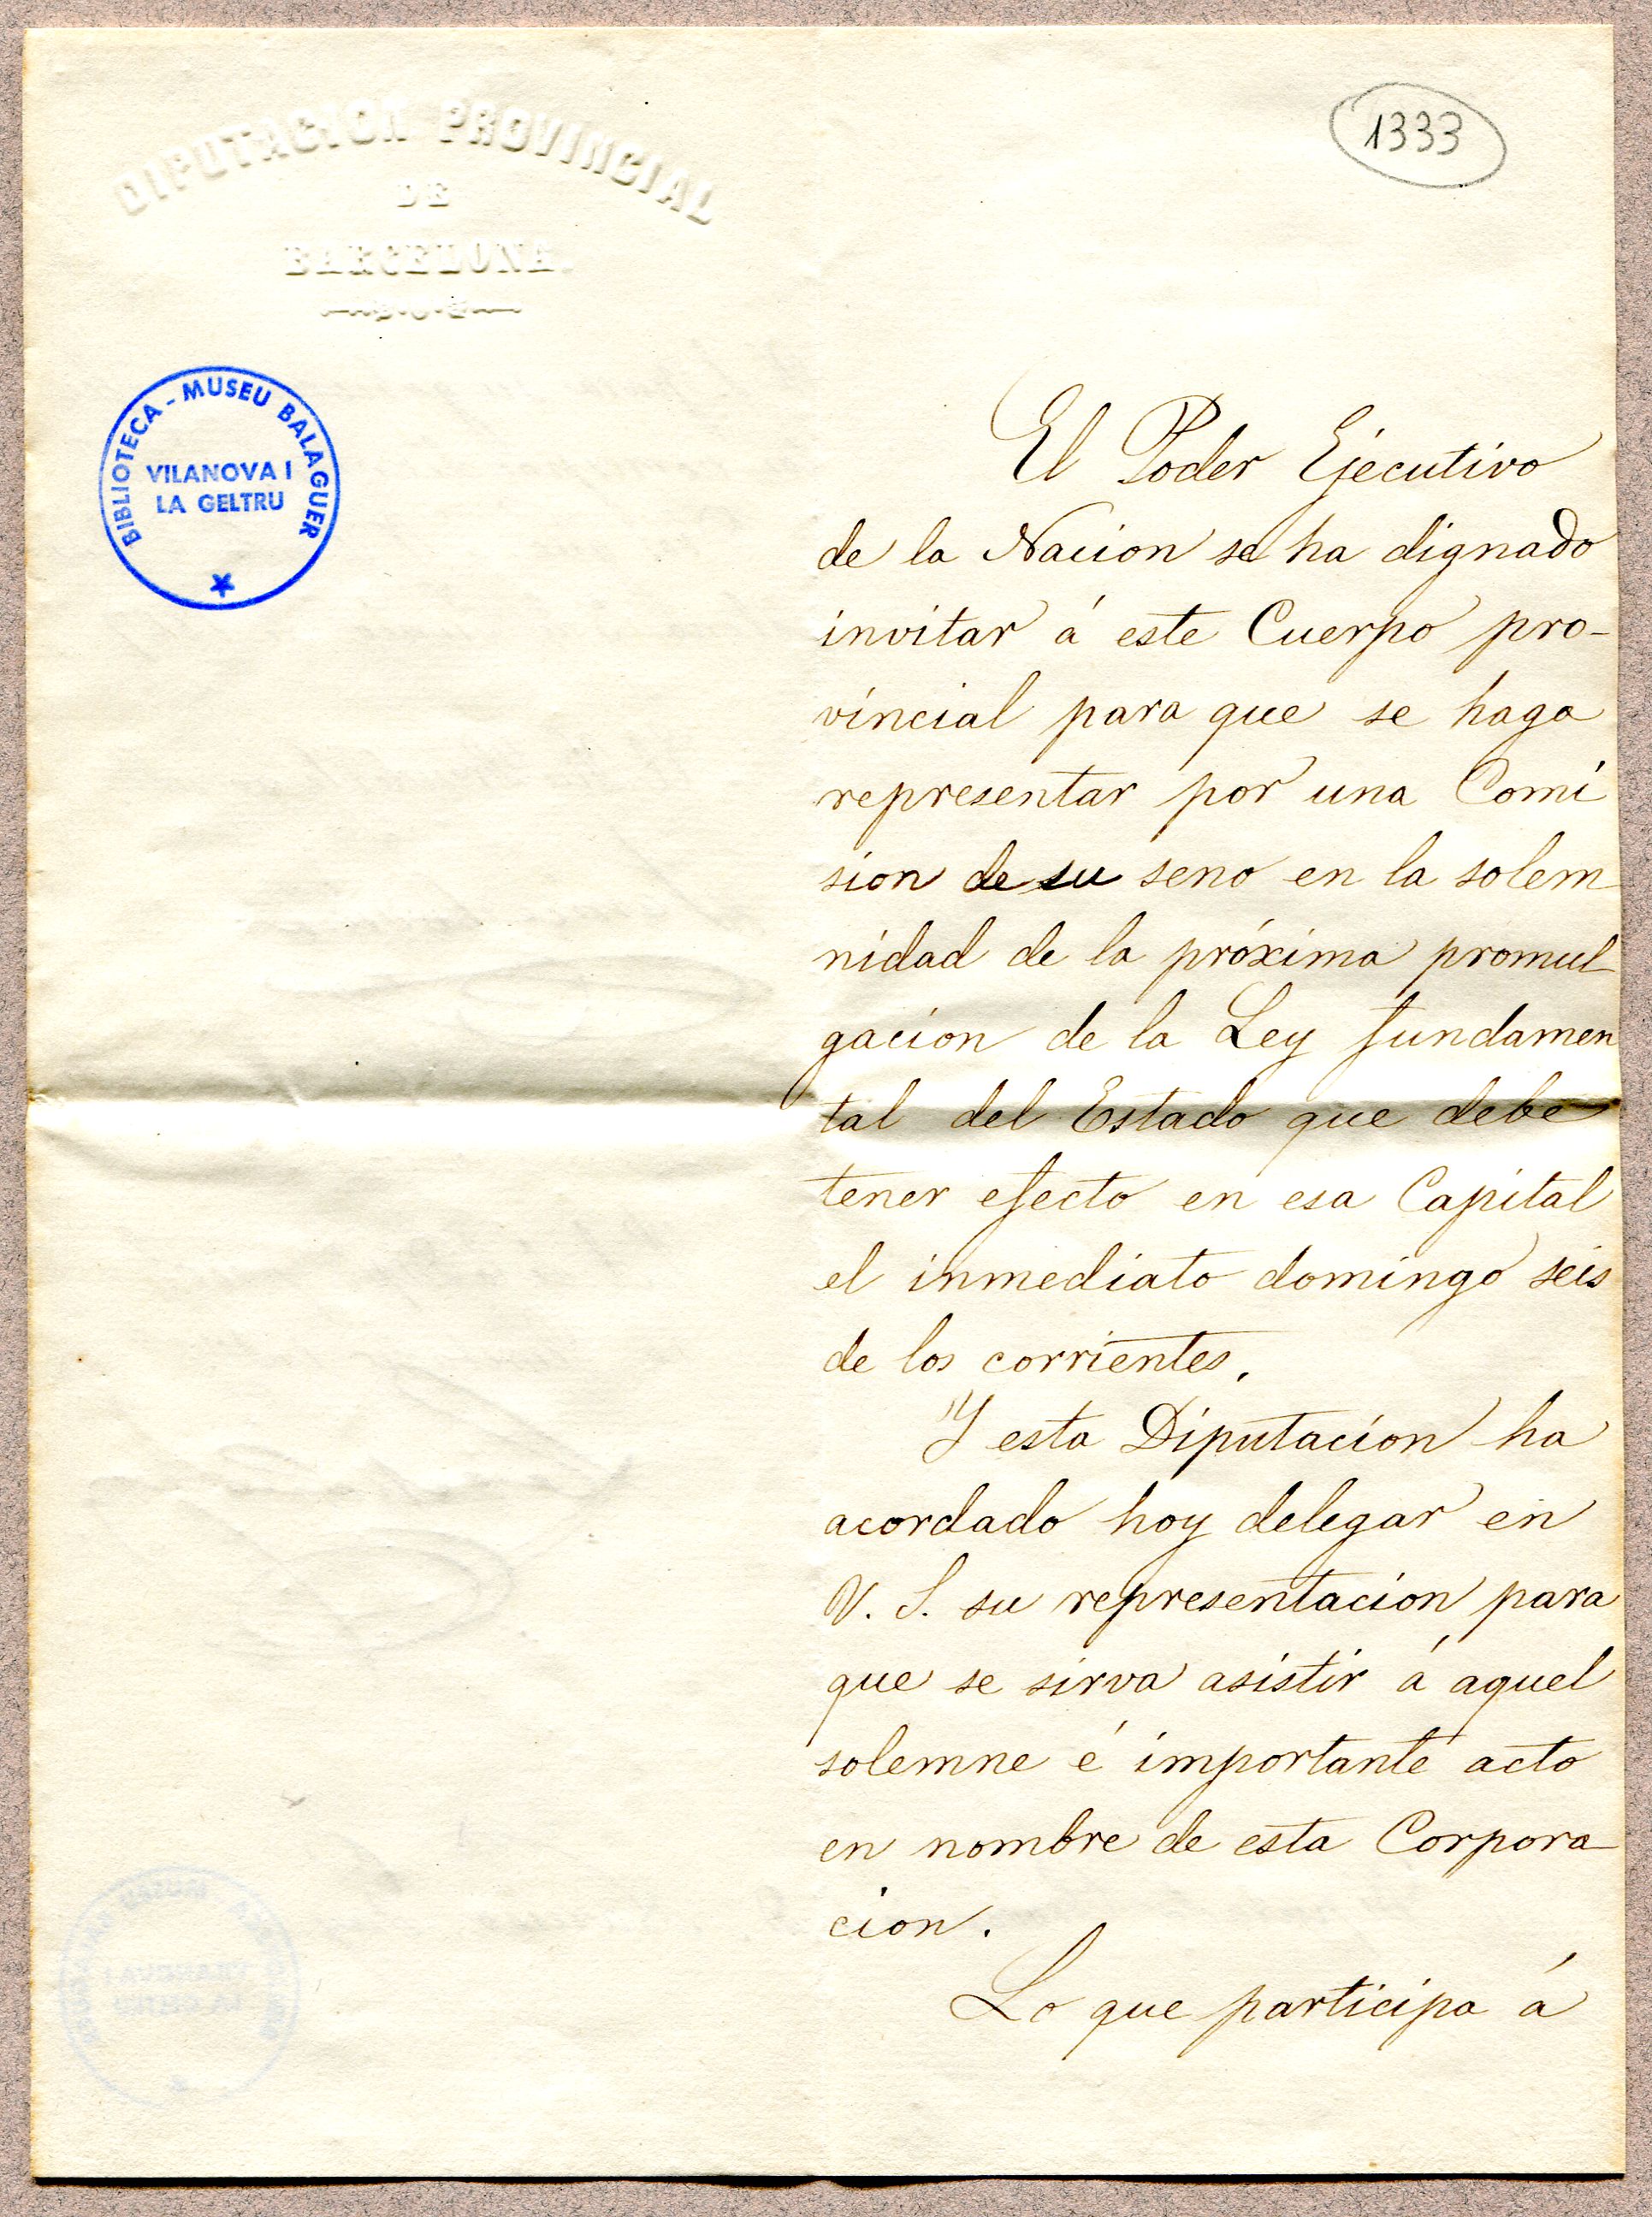 DIPUTACION PROVINCIAL
DE
BARCELONA.
1333
BIBLIOTECA - MUSEU BALAGUER
VILANOVA I
LA GELTRU
El Poder Ejecutivo
de la Nacion se ha dignado
invitar á este Cuerpo pro-
vincial para que se haga
representar por una Comi
sion de su seno en la solem
nidad de la próxima promul
gacion de la Ley fundamen
tal del Estado que debe
tener efecto en esa Capital
el inmediato domingo seis
de los corrientes.
Y esta Diputacion ha
acordado hoy delegar en
V. S. su representacion para
que se sirva asistir á aquel
solemne é importante acto
en nombre de esta Corpora-
cion.
Lo que participa á